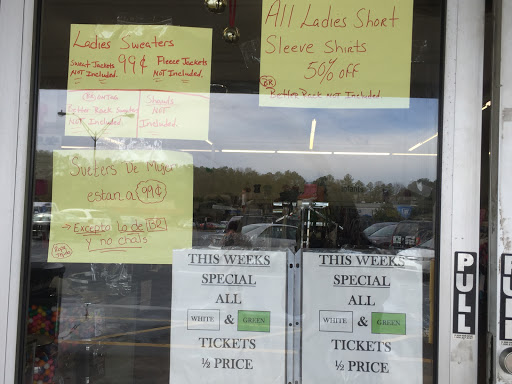 Ladies Sweaters
Sweat Jackets 99¢ Fleece Jackets
NOT Included. NOT Included.
Better Rack Sweaters
NOT Included.
Shawls
NOT
Included.
All Ladies Short
Sleeve Shirts
50% OFF
BR
Better Rack NOT Included.
Sueters De Mujer
estan a 99¢
→ Excepto lo de BR
y no chals
infants
THIS WEEKS
SPECIAL
ALL
WHITE & GREEN
TICKETS
½ PRICE
THIS WEEKS
SPECIAL
ALL
WHITE & GREEN
TICKETS
½ PRICE
PULL
PULL